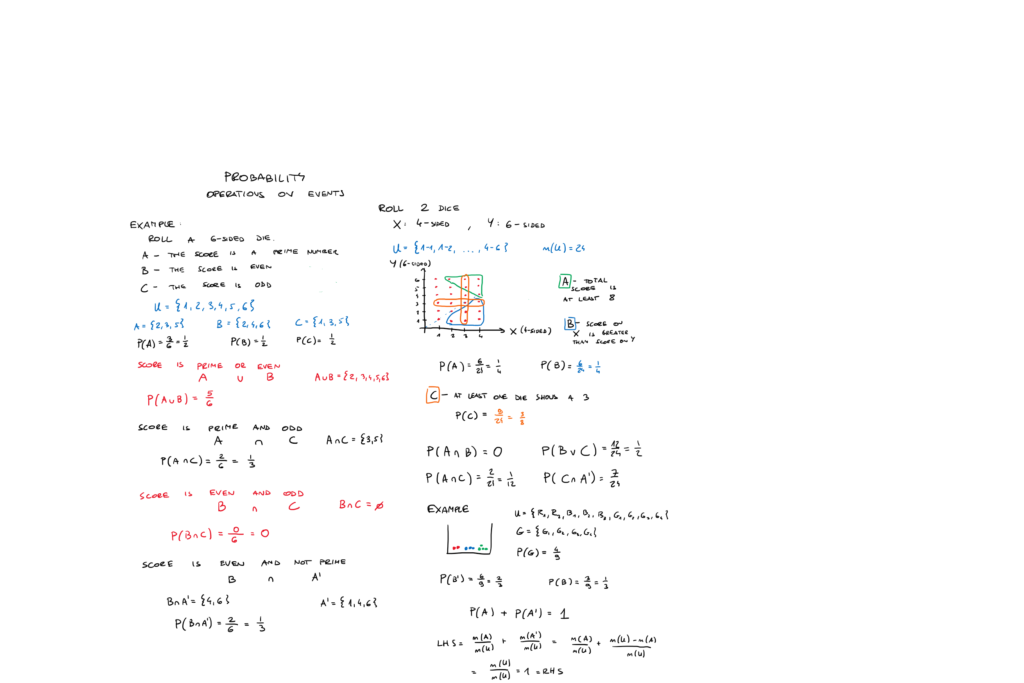 PROBABILITY
OPERATIONS ON EVENTS
EXAMPLE:
ROLL A 6-SIDED DIE.
A - THE SCORE IS A PRIME NUMBER
B - THE SCORE IS EVEN
C - THE SCORE IS ODD
U = {1, 2, 3, 4, 5, 6}
A = {2, 3, 5} B = {2, 4, 6} C = {1, 3, 5}
P(A) = 3/6 = 1/2 P(B) = 1/2 P(C) = 1/2
SCORE IS PRIME OR EVEN
A ∪ B A∪B = {2, 3, 4, 5, 6}
P(A∪B) = 5/6
SCORE IS PRIME AND ODD
A ∩ C A∩C = {3, 5}
P(A∩C) = 2/6 = 1/3
SCORE IS EVEN AND ODD
B ∩ C B∩C = ∅
P(B∩C) = 0/6 = 0
SCORE IS EVEN AND NOT PRIME
B ∩ A'
B∩A' = {4, 6} A' = {1, 4, 6}
P(B∩A') = 2/6 = 1/3
ROLL 2 DICE
X: 4-SIDED , Y: 6-SIDED
U = {1-1, 1-2, ..., 4-6} n(U) = 24
Y (6-SIDED)
6
5
4
3
2
1
1 2 3 4 X (4-SIDED)
A - TOTAL
SCORE IS
AT LEAST 8
B - SCORE ON
X IS GREATER
THAN SCORE ON Y
P(A) = 6/24 = 1/4 P(B) = 6/24 = 1/4
C - AT LEAST ONE DIE SHOWS A 3
P(C) = 9/24 = 3/8
P(A∩B) = 0 P(B∪C) = 12/24 = 1/2
P(A∩C) = 2/24 = 1/12 P(C∩A') = 7/24
EXAMPLE
G = {G₁, G₂, G₃, G₄}
P(G) = 4/9
P(B') = 6/9 = 2/3 P(B) = 3/9 = 1/3
P(A) + P(A') = 1
LHS = n(A)/n(U) + n(A')/n(U) = n(A)/n(U) + n(U)-n(A)/n(U)
= n(U)/n(U) = 1 = RHS